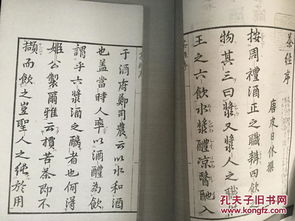 茶經序
唐皮日休撰
按周禮酒正之職辨四飲
物其三曰漿又漿人之
王之六飲水漿醴涼醫酏入
于酒府鄭司農云以水和酒
也蓋當時人率以酒醴為飲
謂乎六漿酒之醨者也何得
姬公製爾雅云檟苦荼即不
擷而飲之豈聖人之純於用